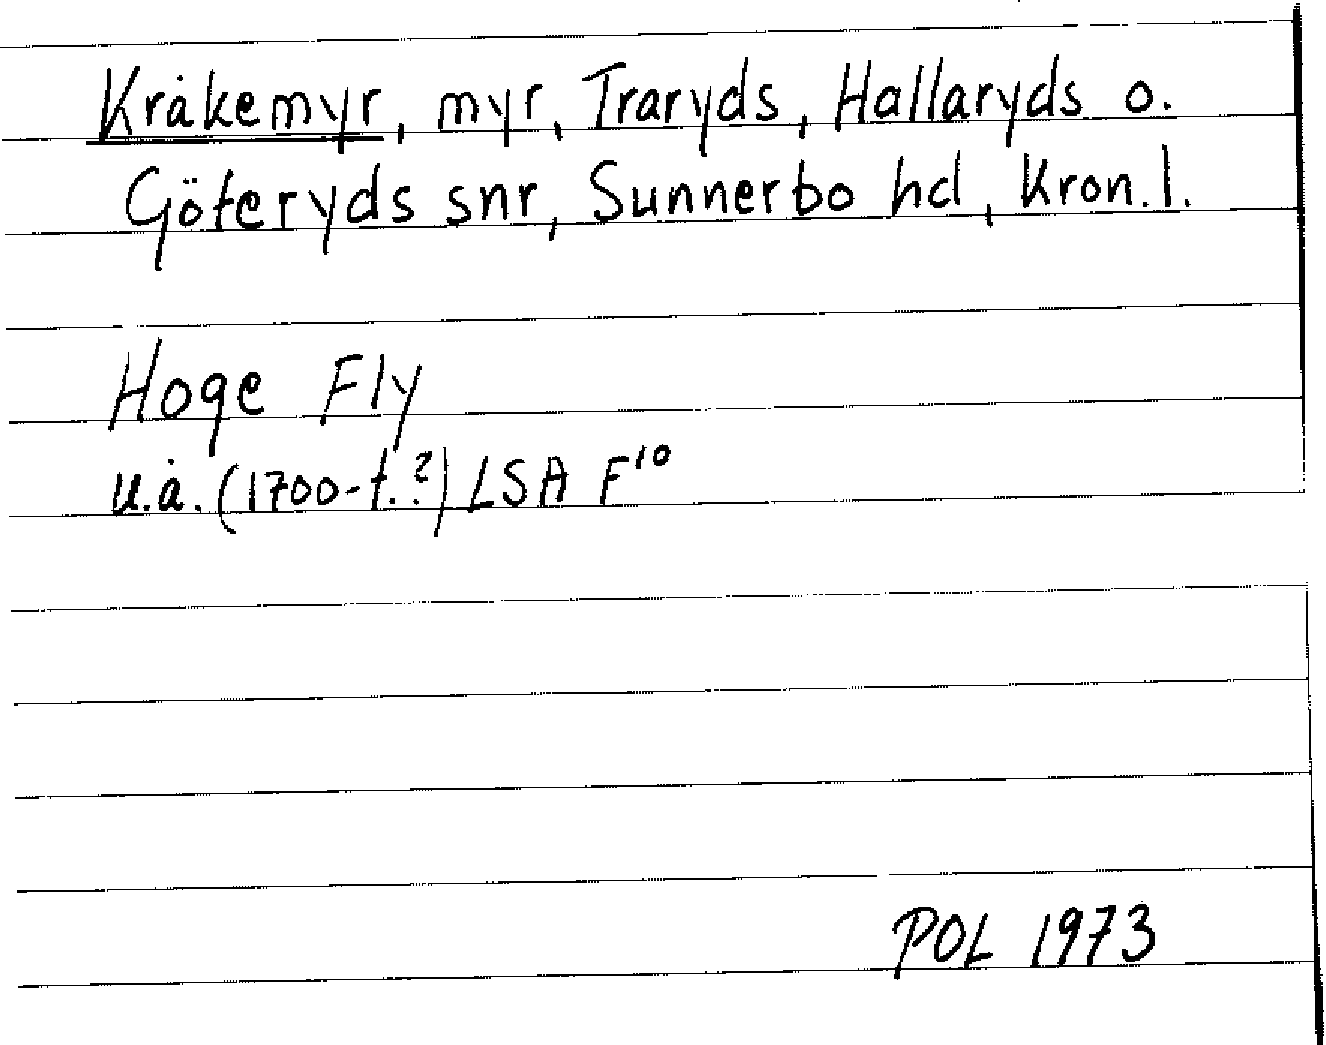 Kråkemyr, myr, Traryds, Hallaryds o.
Göteryds snr, Sunnerbo hd, Kron.l.
Hoge Fly
u.å. (1700-t.?) LSA F¹⁰
POL 1973